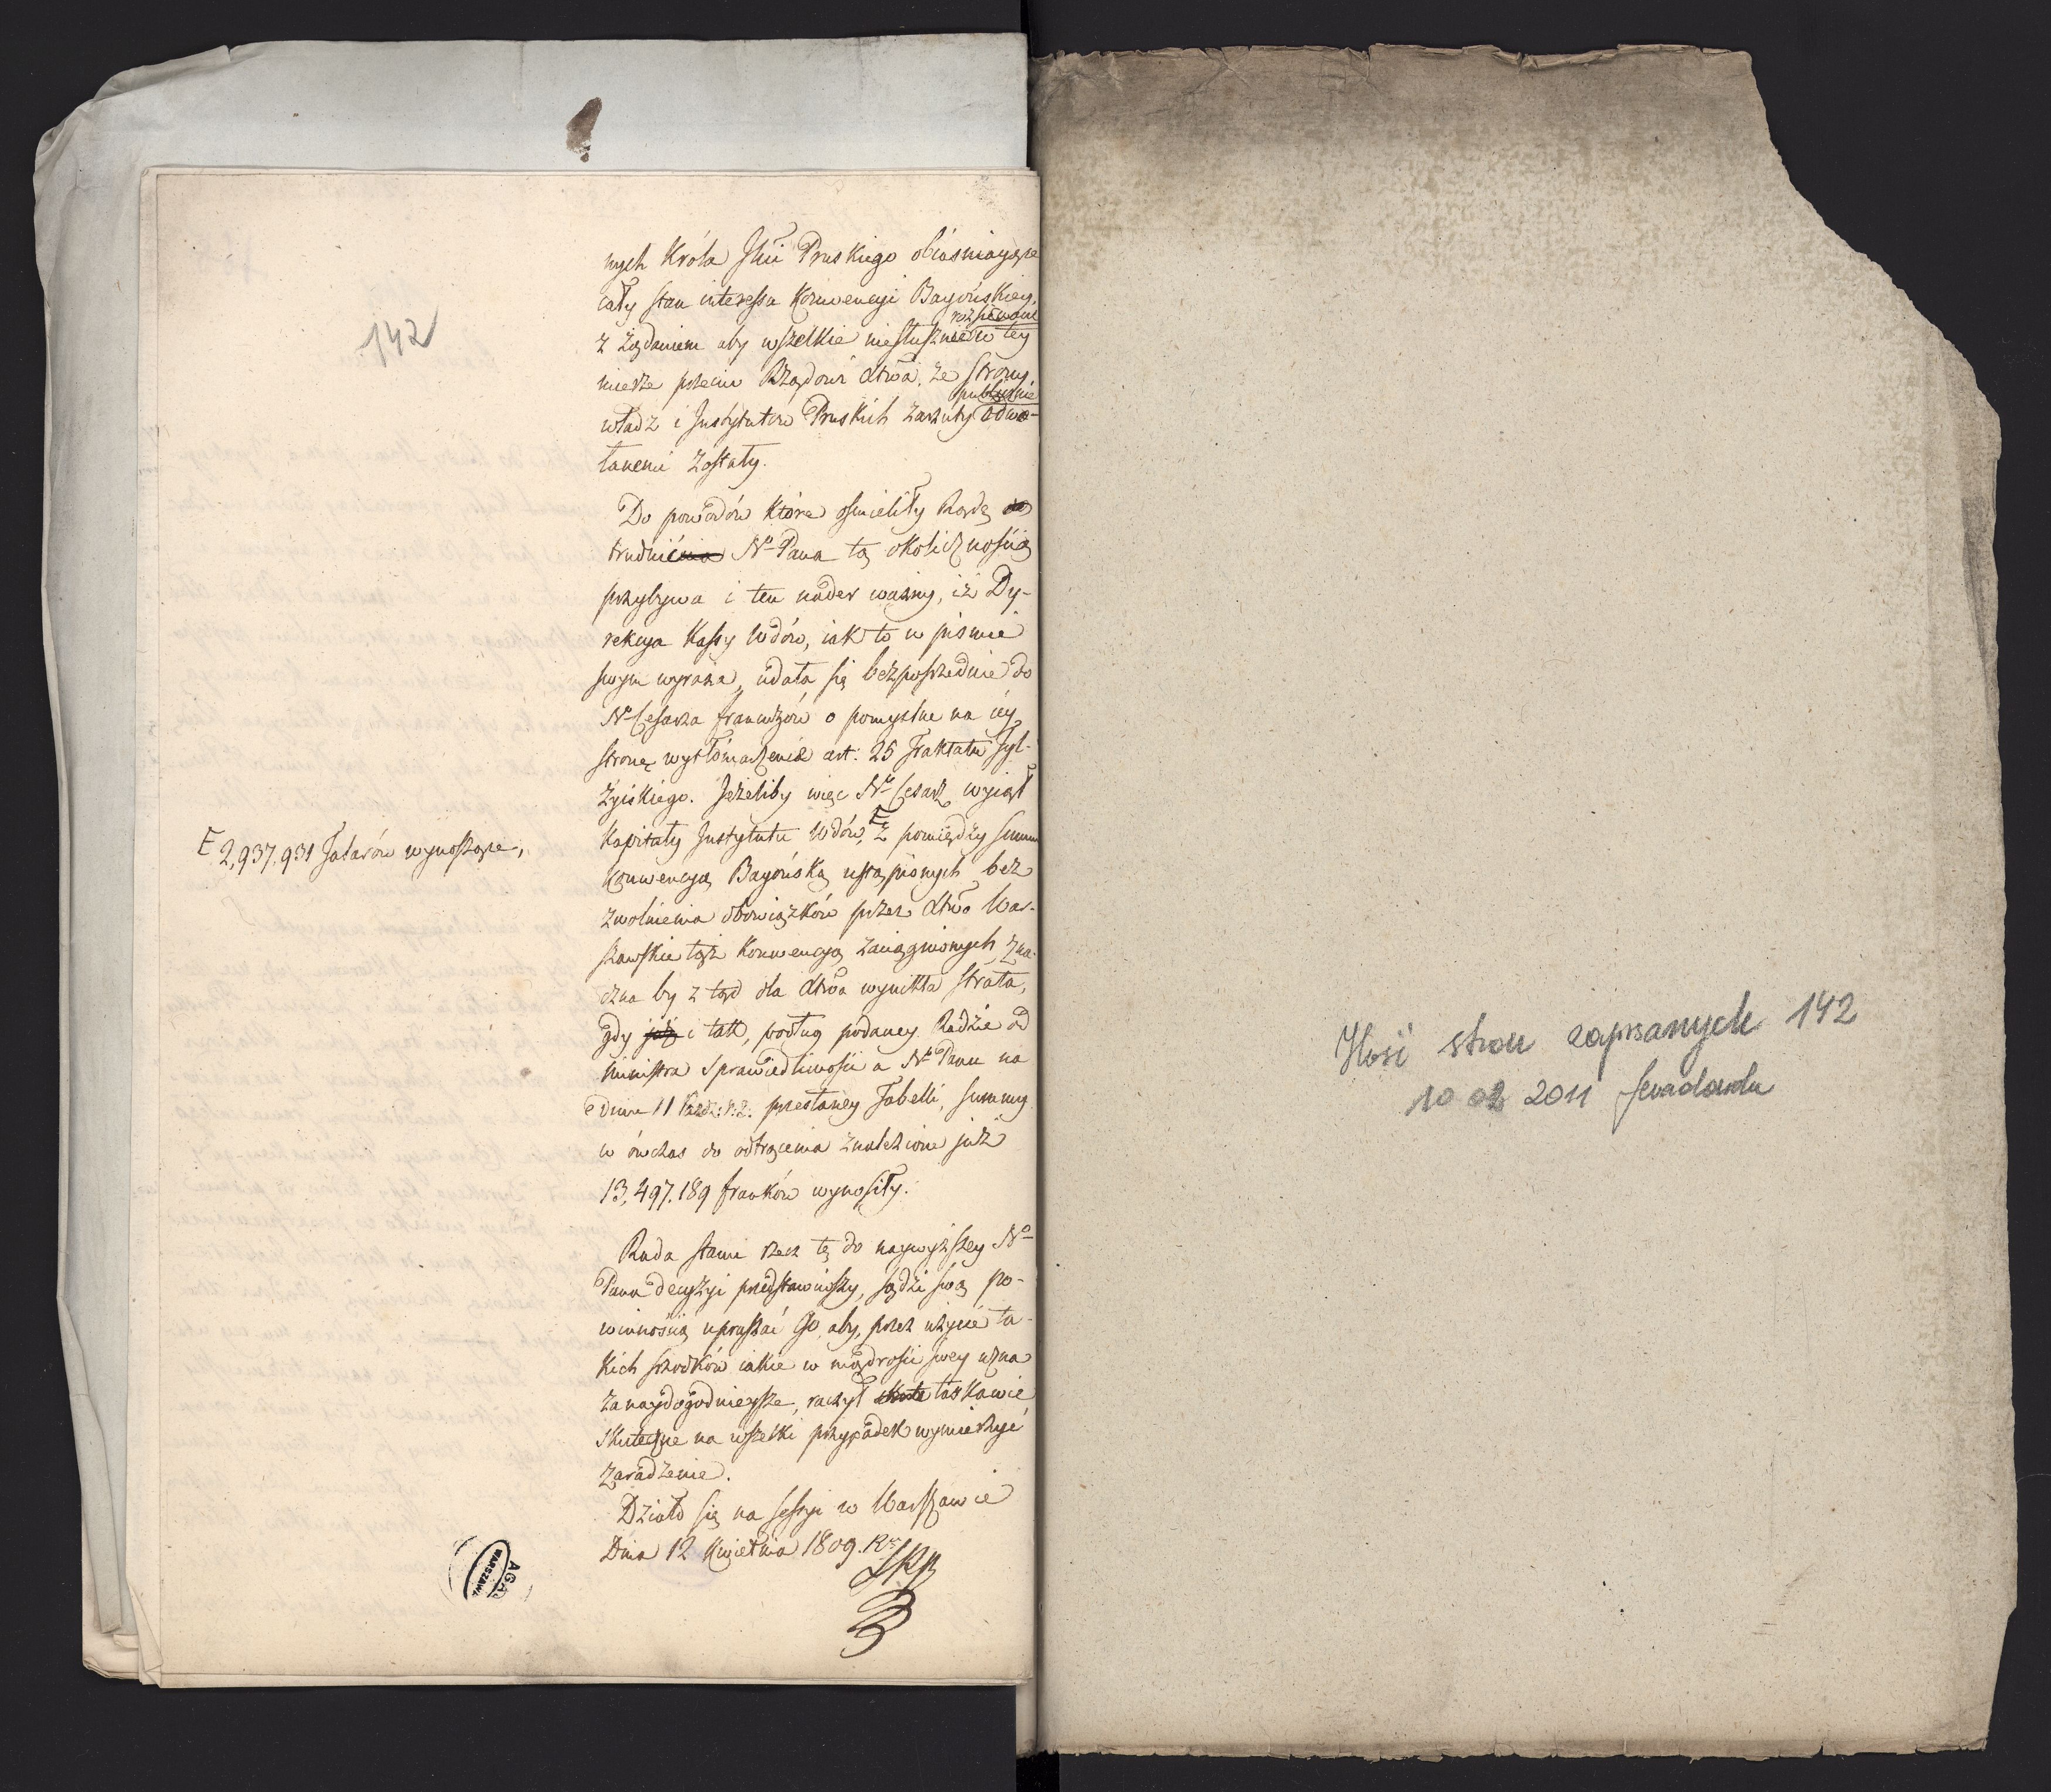 142
nych Króla Jmci Pruskiego obiaśniaiące
cały stan interessu Konwencyi Bayońskiey,
z żądaniem aby wszelkie niesłusznie rozsiewane w tey
mierze przeciw Rządowi Xtwa, ze strony
władz i Instytutów Pruskich zarzuty publicznie odwo-
łanemi zostały.
Do powodów które ośmieliły Radę do
trudnienia Nº Pana tą okolicznością
przybywa i ten nader ważny, iż Dy-
rekcya Kassy Wdów, iak to w piśmie
swym wyraża, udała się bezpośrzednie do
Nº Cesarza francuzów o pomyślne na iey
stronę wytłomaczenie art: 25 Traktatu Tyl-
życkiego. Jeżeliby więc Nº Cesarz wyiął
Kapitały Instytutu Wdów, F z pomiędzy summ
F 2,937,931 Talarów wynoszące,
Konwencyą Bayońską ustąpionych bez
zwolnienia obowiązków przez Xtwo War-
szawskie tąż Konwencyą zaciągnionych, zna-
czna by z tąd dla Xtwa wynikła strata,
gdy już i tak, podług podaney Radzie od
Ministra Sprawiedliwości a Nº Panu na
dniu 11 Paźdz: r. z. przesłaney Tabelli, summy
w ówczas do odtrącenia znalezione już
13,497,189 franków wynosiły.
Rada stanu rzecz tę do naywyższey Nº
Pana decyzyi przedstawiwszy, sądzi swą po-
winnością upraszać Go, aby, przez użycie ta-
kich srzodków iakie w mądrości swey uzna
za naydogodnieysze, raczył skute łaskawie
skuteczne na wszelki przypadek wymierzyć
zaradzenie.
Działo się na sessyi w Warszawie
Dnia 12 Kwietnia 1809. Rº
AGAD
WARSZAWA
Ilość stron zapisanych 142
10 02 2011